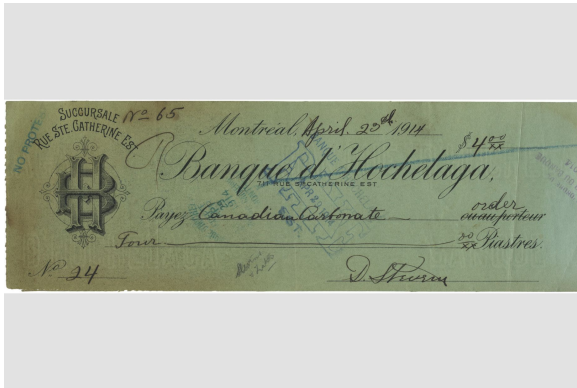 SUCCURSALE
RUE STE. CATHERINE EST
No 65
NO PROTE
Montréal, April 23rd 1914
$4 00/xx
Banque d'Hochelaga,
711 RUE STE CATHERINE EST
Payez Canadian Carbonate
order
ou au porteur
Four 00/xx Piastres.
No 24
D.